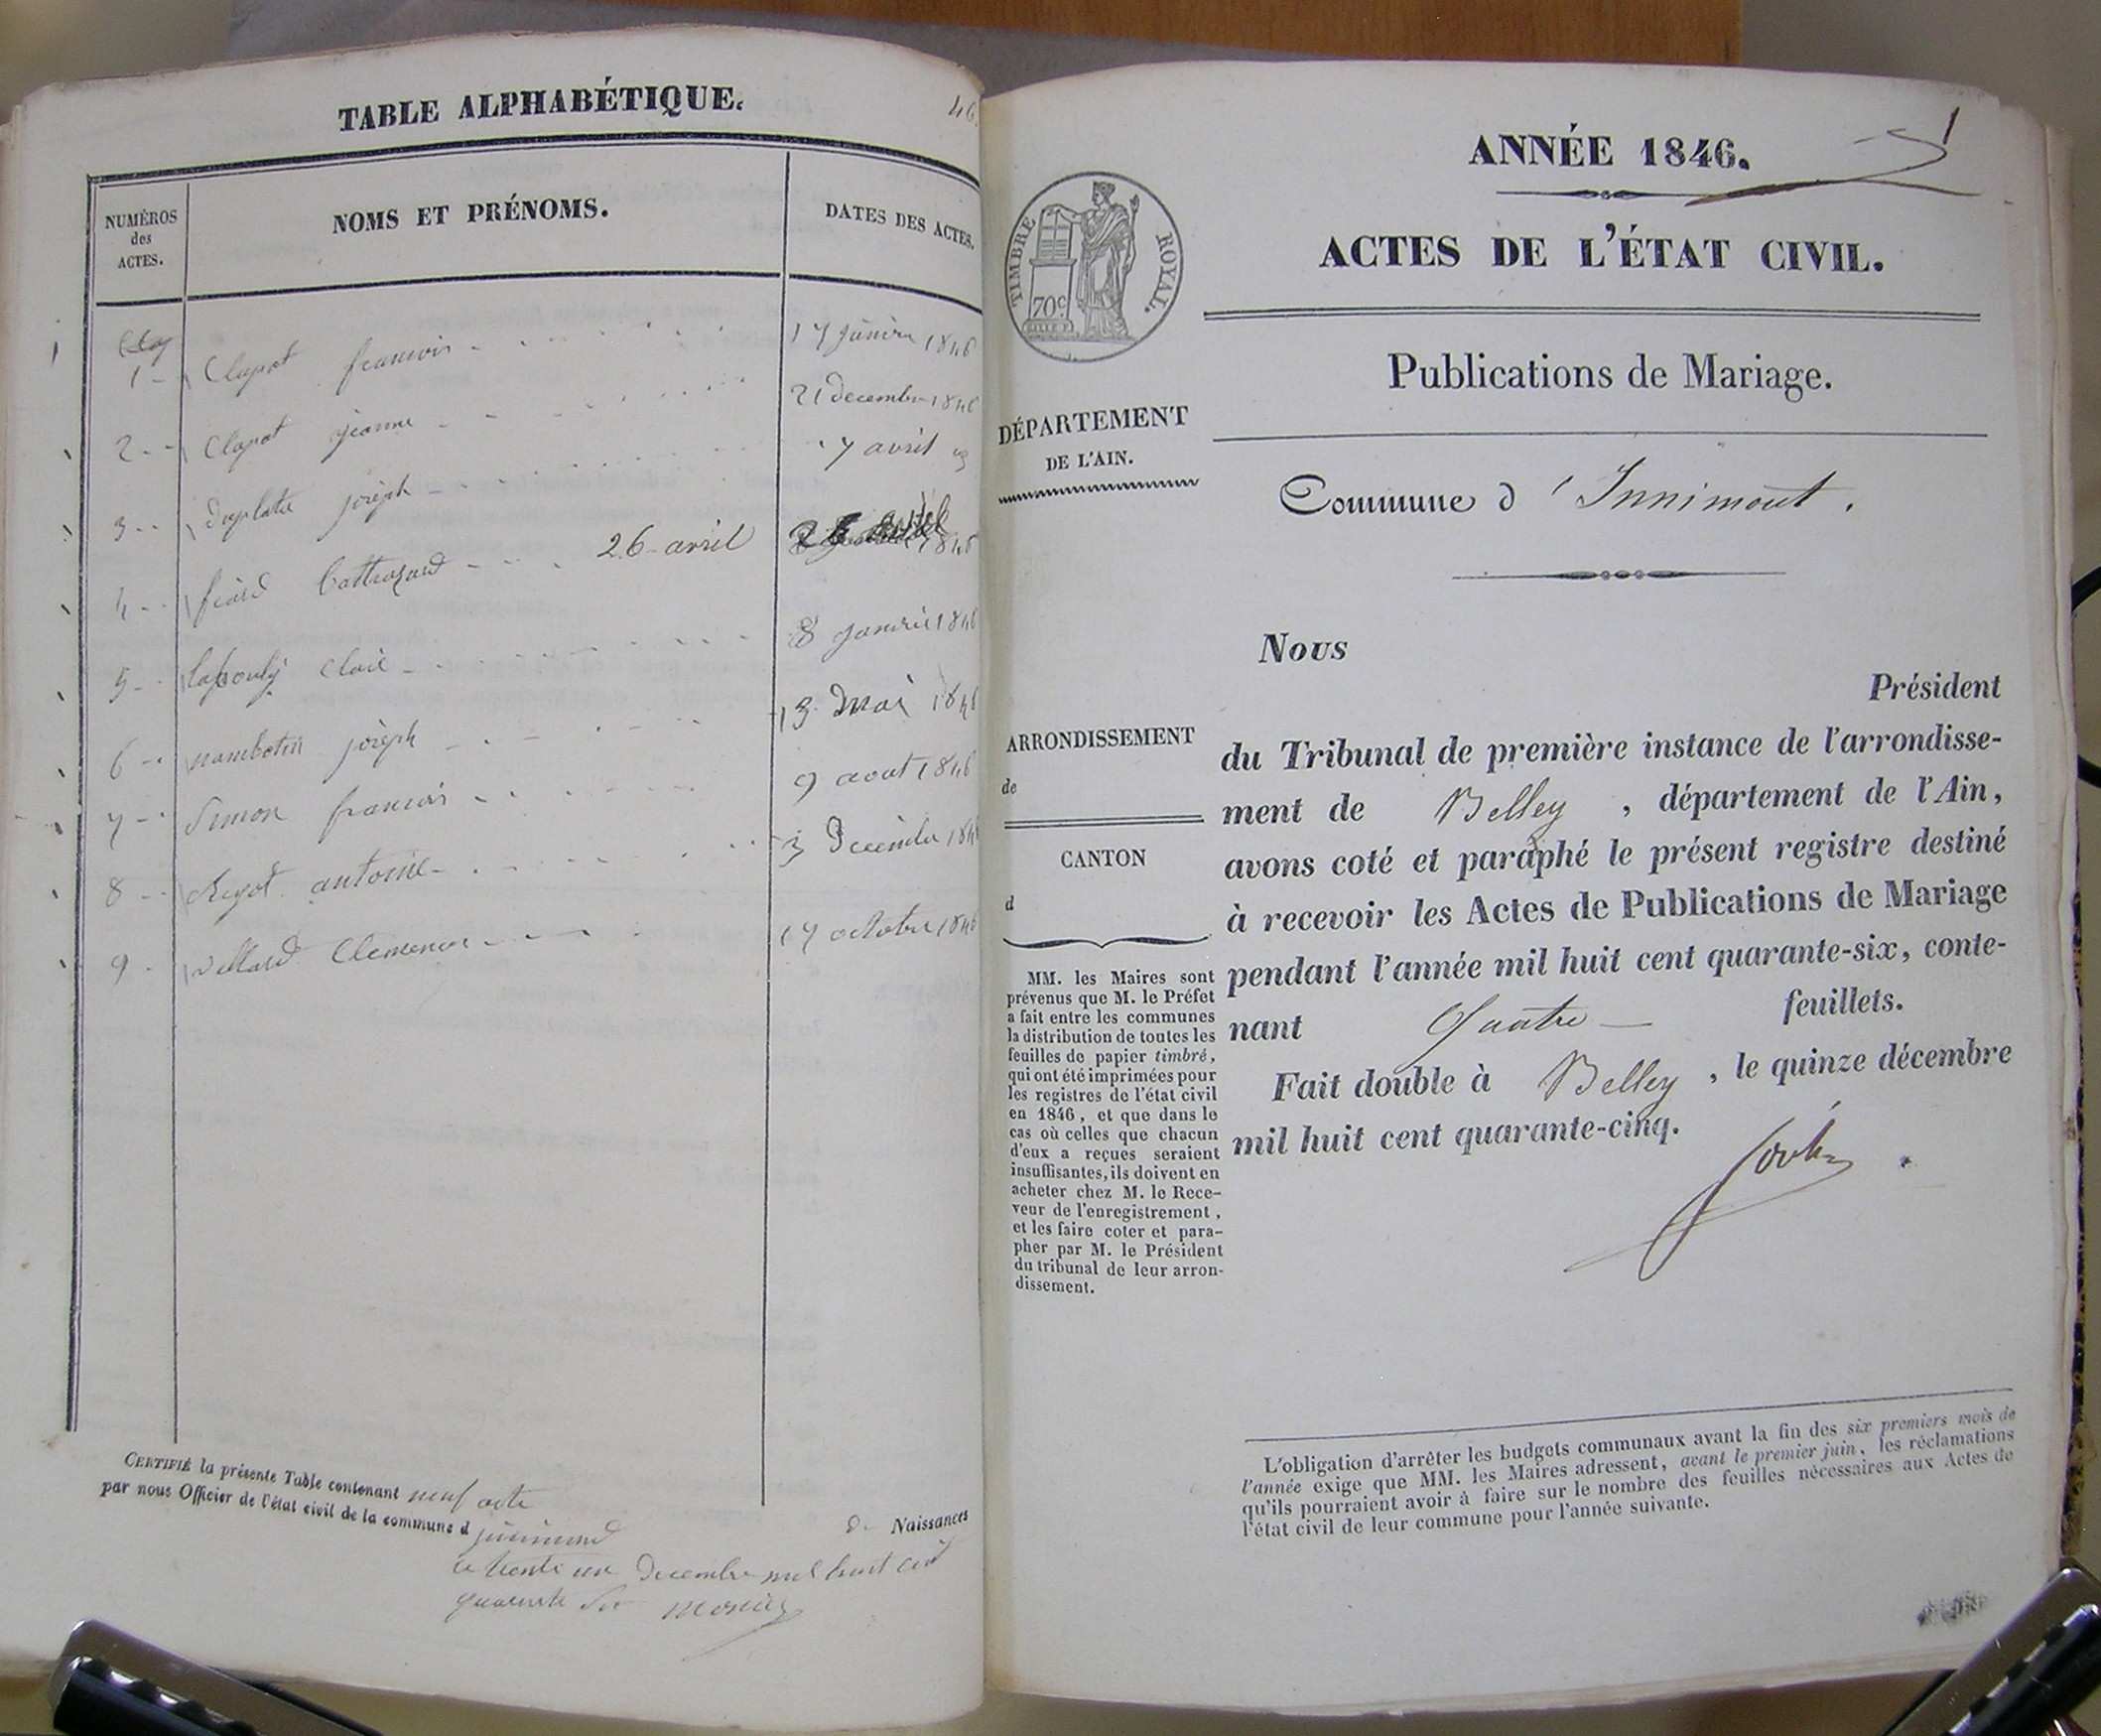 TABLE ALPHABÉTIQUE.
46
NUMÉROS
des
ACTES.
NOMS ET PRÉNOMS.
DATES DES ACTES.
1 Clapot francois 17 janvier 1846
2 Clapot jeanne 21 decembre 1846
3 joseph 7 avril
4 26 avril 1846
5 8 janvier 1846
6 joseph 13 mai 1846
7 Simon francois 9 aout 1846
8 antoine 3 Decembre 1846
9 17 octobre 1846
CERTIFIÉ la présente Table contenant neuf acte
de Naissances
par nous Officier de l'état civil de la commune d
ce trente un Decembre mil huit cent
quarente six
1
ANNÉE 1846.
ACTES DE L'ÉTAT CIVIL.
TIMBRE ROYAL.
70c
Publications de Mariage.
DÉPARTEMENT
DE L'AIN.
Commune d'Innimont.
ARRONDISSEMENT
de
CANTON
d
MM. les Maires sont
prévenus que M. le Préfet
a fait entre les communes
la distribution de toutes les
feuilles de papier timbré,
qui ont été imprimées pour
les registres de l'état civil
en 1846, et que dans le
cas où celles que chacun
d'eux a reçues seraient
insuffisantes, ils doivent en
acheter chez M. le Rece-
veur de l'enregistrement,
et les faire coter et para-
pher par M. le Président
du tribunal de leur arron-
dissement.
Nous
Président
du Tribunal de première instance de l'arrondisse-
ment de Belley, département de l'Ain,
avons coté et paraphé le présent registre destiné
à recevoir les Actes de Publications de Mariage
pendant l'année mil huit cent quarante-six, conte-
nant Quatre feuillets.
Fait double à Belley, le quinze décembre
mil huit cent quarante-cinq.
L'obligation d'arrêter les budgets communaux avant la fin des six premiers mois de
l'année exige que MM. les Maires adressent, avant le premier juin, les réclamations
qu'ils pourraient avoir à faire sur le nombre des feuilles nécessaires aux Actes de
l'état civil de leur commune pour l'année suivante.